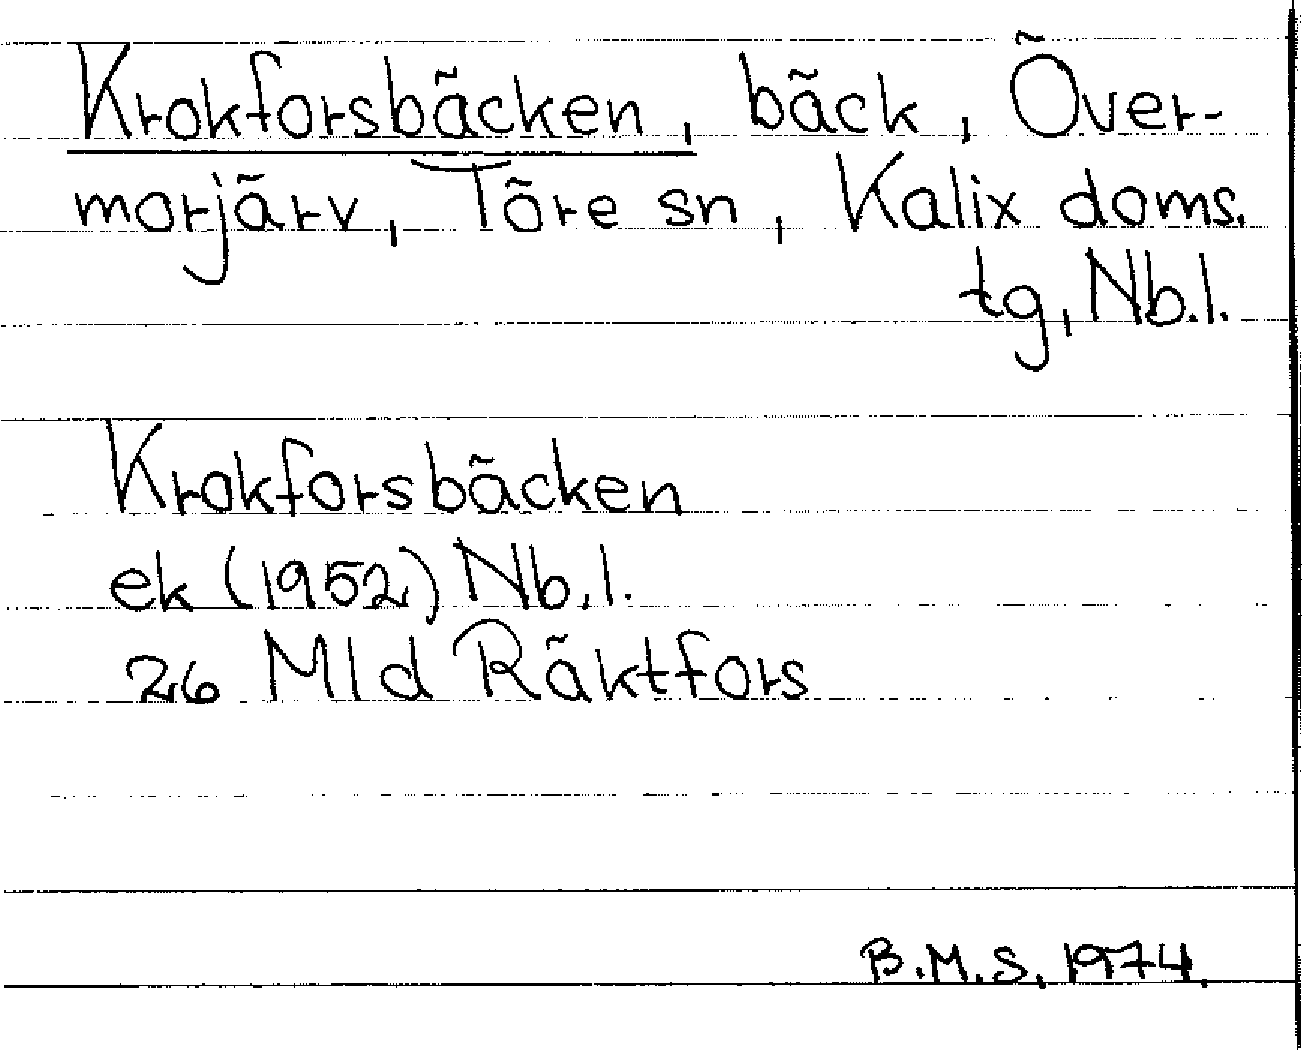 Krokforsbäcken, bäck, Över-
morjärv, Töre sn, Kalix doms.
tg, Nb.l.
Krokforsbäcken
ek (1952) Nb.l.
26 Mld Räktfors
B.M.S. 1974.